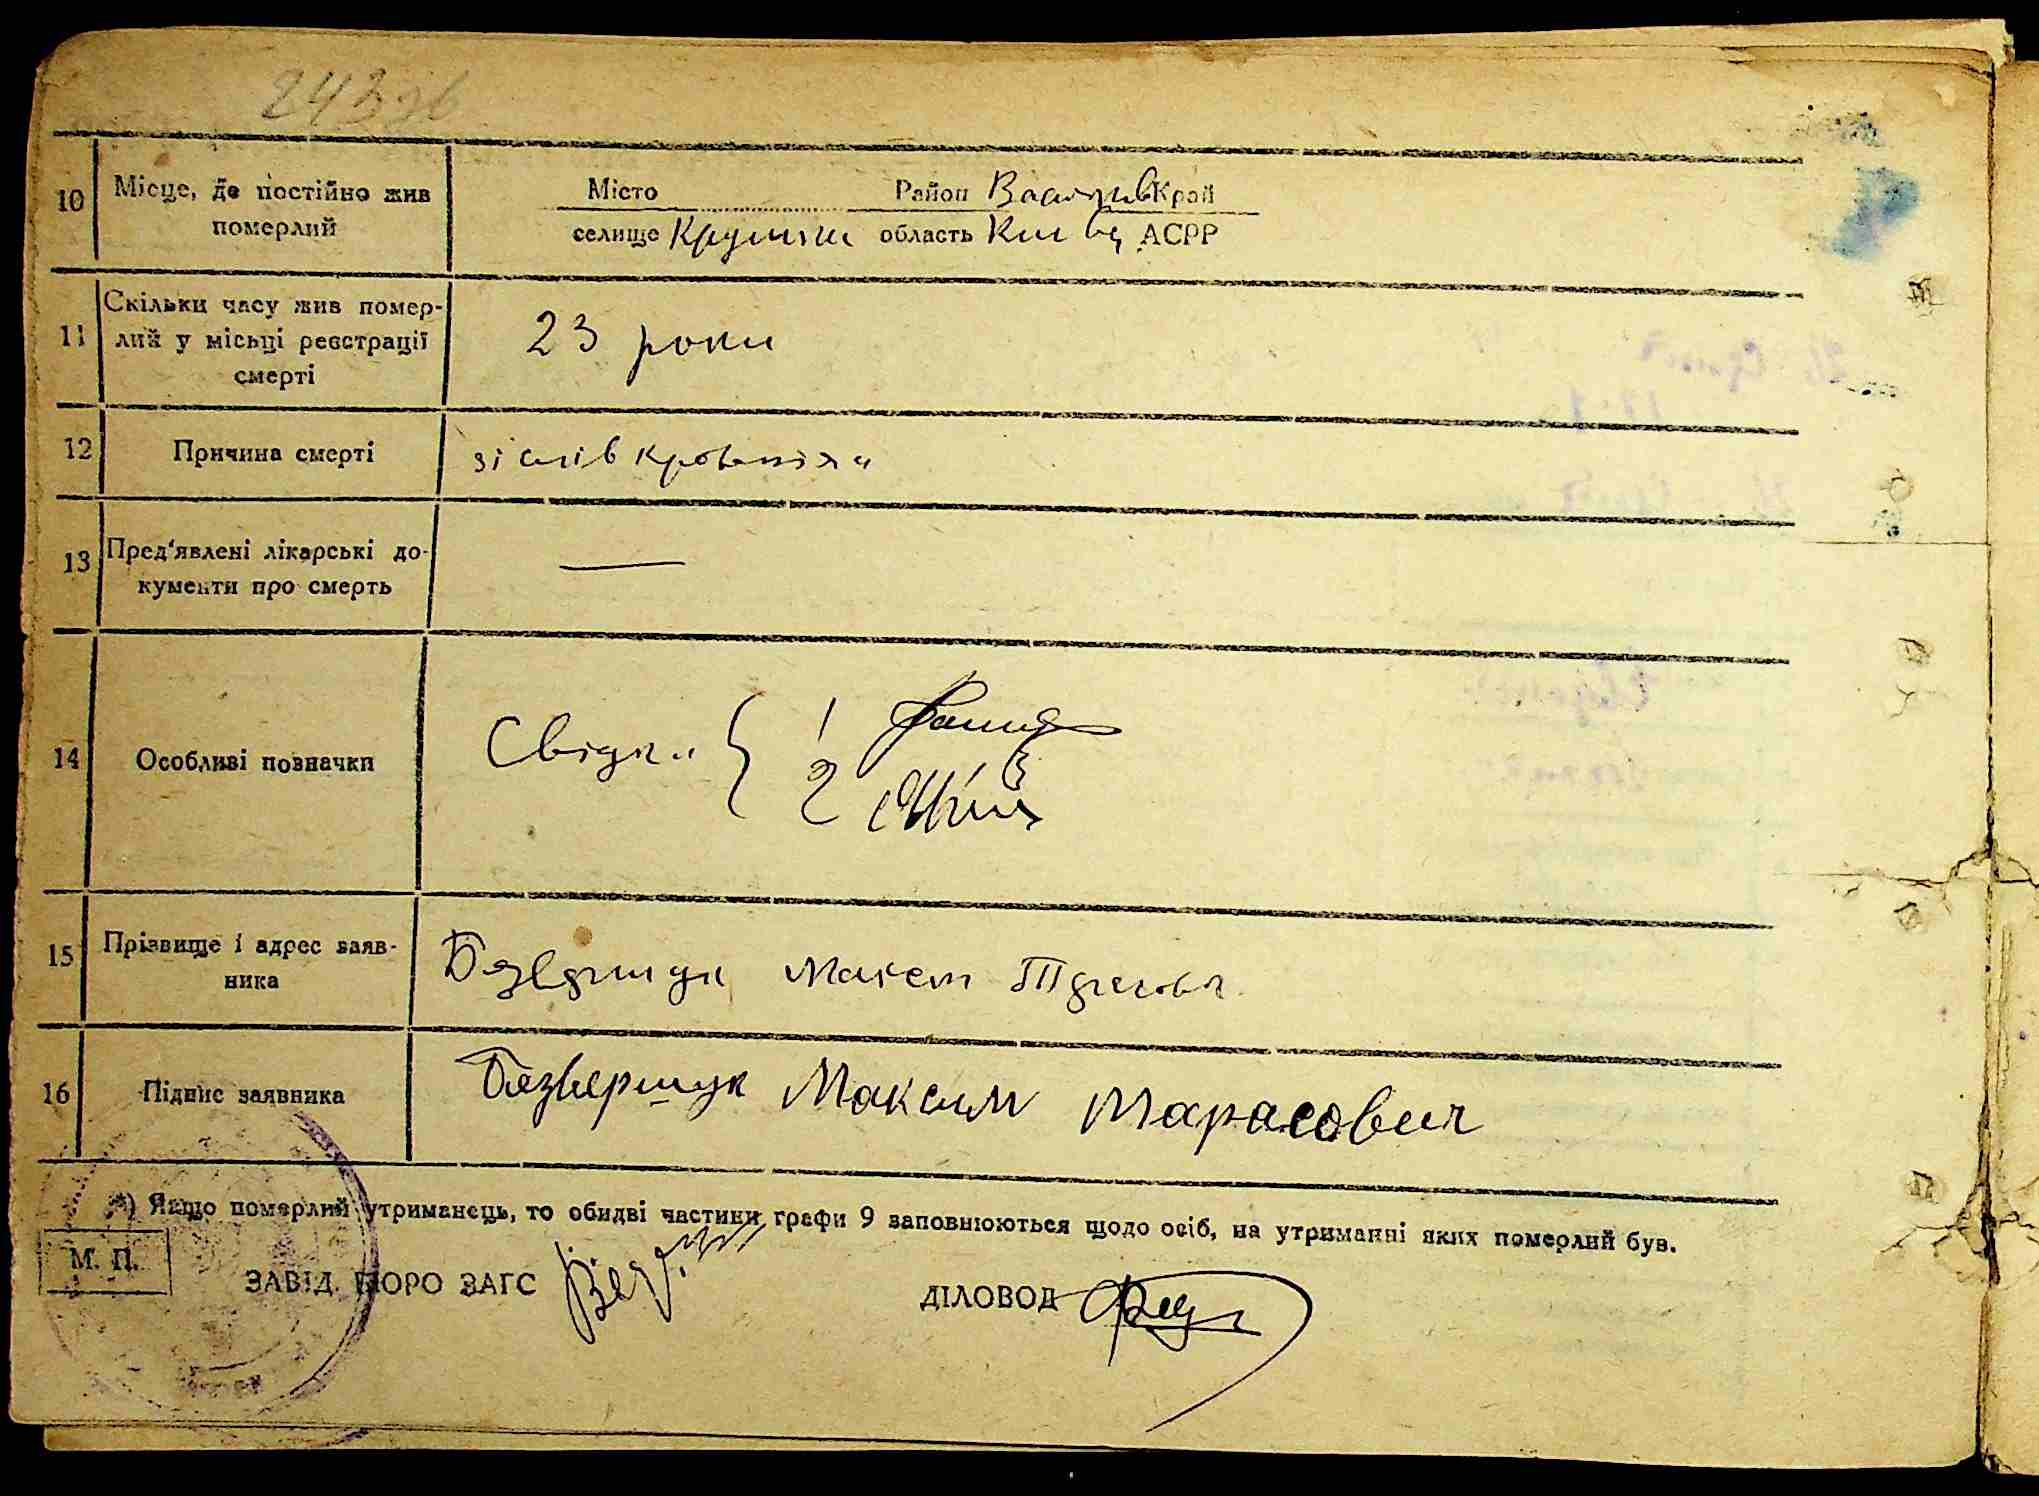 243зв
10 Місце, де постійно жив Місто Район Васильків Край
померлий селище Крушки область Київ АСРР
11 Скільки часу жив помер-
лий у місьці реєстрації 23 роки
смерті
12 Причина смерті
13 Пред'явлені лікарські до-
кументи про смерть —
14 Особливі позначки Свідки { 1
2
15 Прізвище і адрес заяв- Безвершук Максим Тарасович
ника
16 Підпис заявника Безвершук Максим Тарасович
*) Якщо померлий утриманець, то обидві частини графи 9 заповнюються щодо осіб, на утриманні яких померлий був.
М. П.
ЗАВІД. БЮРО ЗАГС ДІЛОВОД